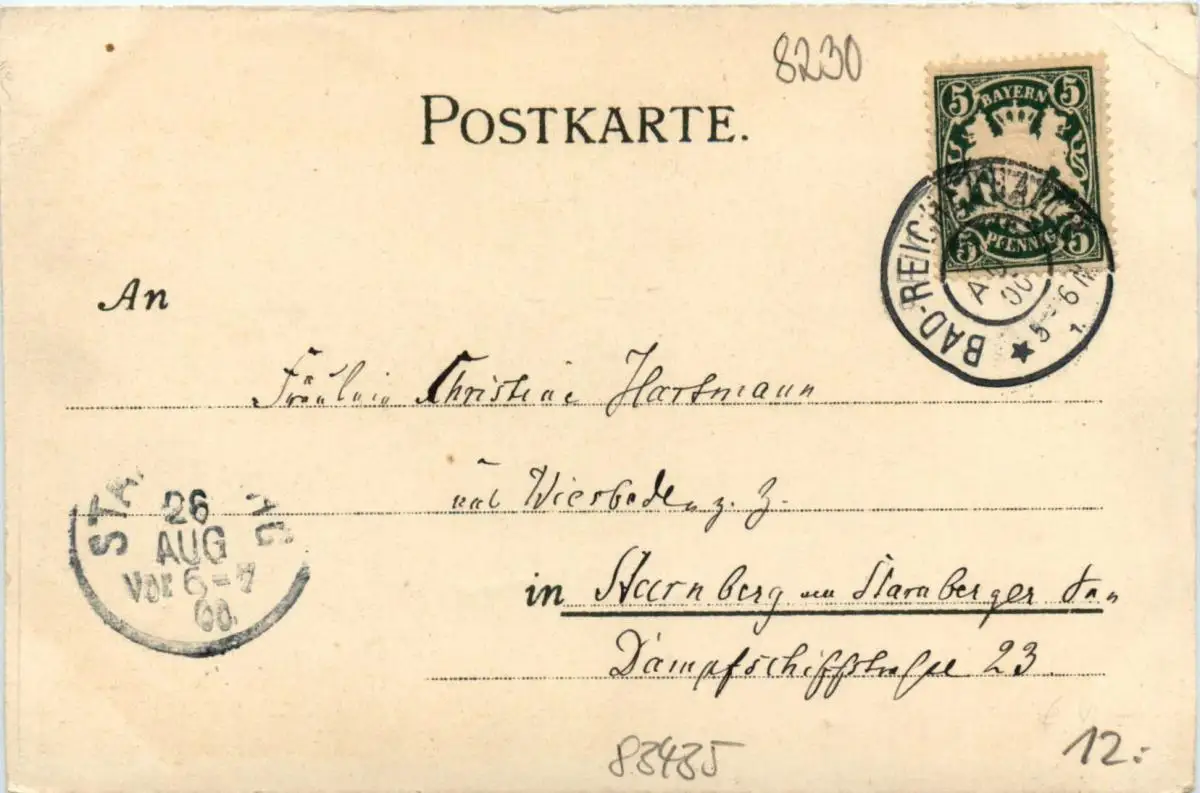 8230
POSTKARTE.
5 BAYERN 5
5 PFENNIG 5
BAD-REICHENHALL
AUG
00
5-6 N
1.
An
Fräulein Christine Hartmann
aus Wiesbaden z. Z.
in Starnberg am Starnberger
Dampfschiffstraße 23
26
AUG
Vor 6-7
00
83435
12.-